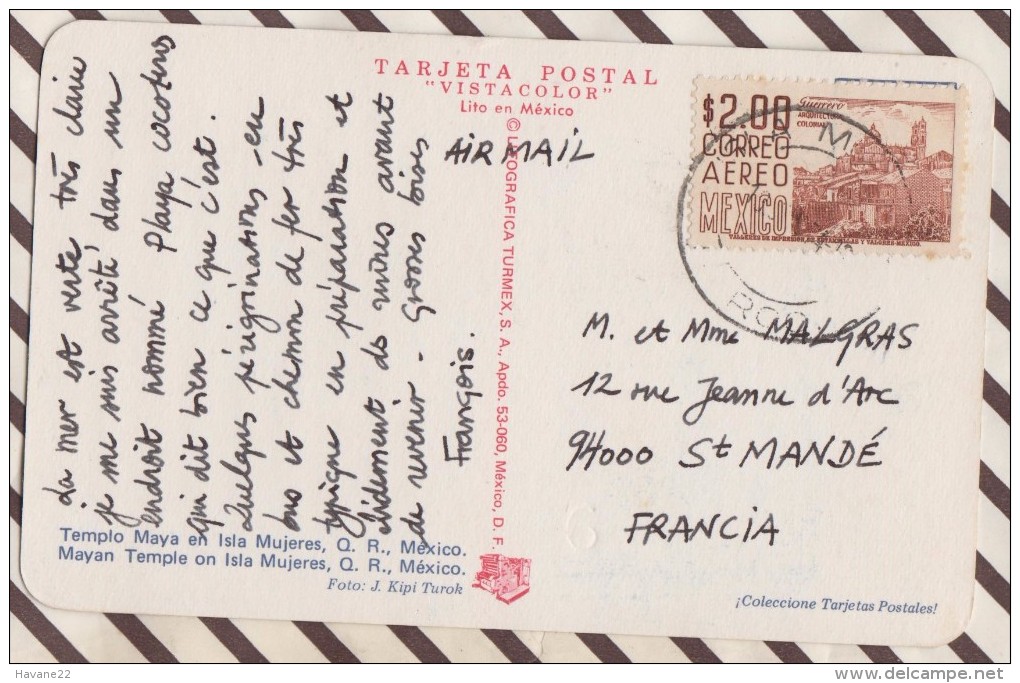 TARJETA POSTAL
"VISTACOLOR"
Lito en México
© LITOGRAFICA TURMEX, S. A., Apdo. 53-060, México, D. F.
AIR MAIL
$2.00
CORREO
AEREO
MEXICO
Guerrero
ARQUITECTURA
COLONIAL
La mer est verte très claire
je me suis arrêté dans un
endroit nommé Playa cocoteros
qui dit bien ce que c'est.
Quelques pérégrinations en
bus et chemin de fer très
typique en préparation et
évidemment des ruines avant
de revenir - Grosses bises
François.
M. et Mme MALGRAS
12 rue Jeanne d'Arc
94000 St MANDÉ
FRANCIA
Templo Maya en Isla Mujeres, Q. R., México.
Mayan Temple on Isla Mujeres, Q. R., México.
Foto: J. Kipi Turok
¡Coleccione Tarjetas Postales!
Havane22
delcampe.net